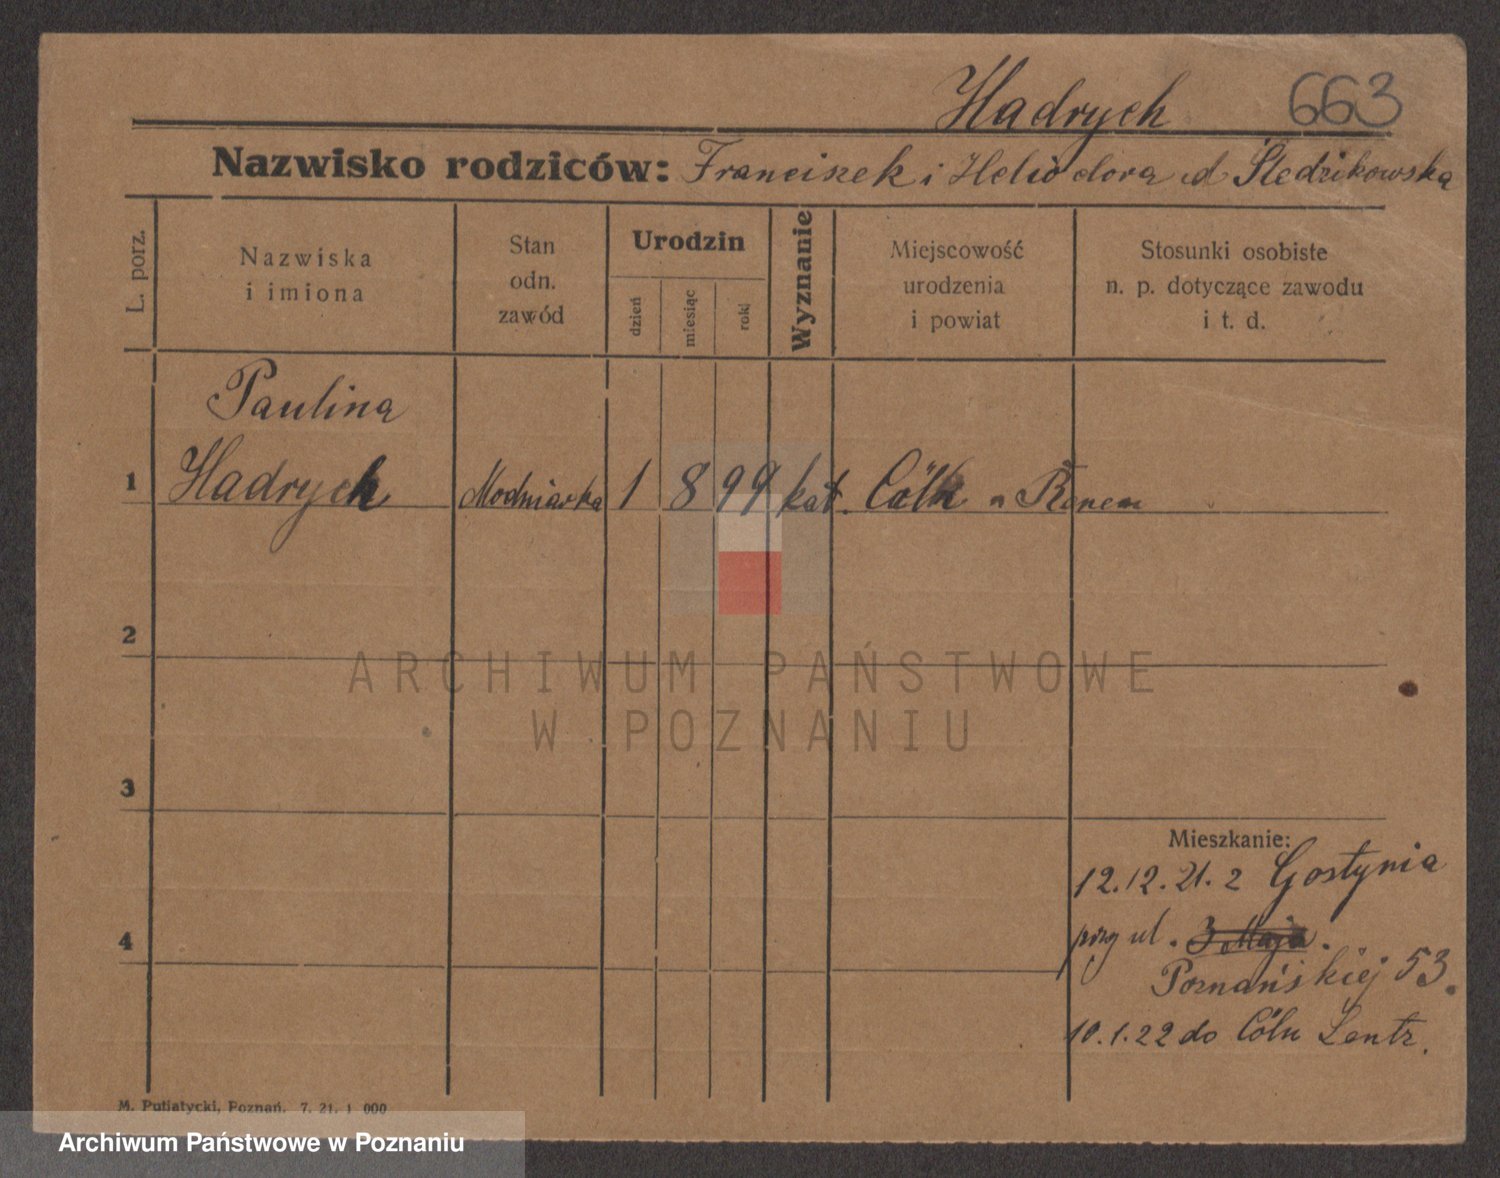 Hadrych 663
Nazwisko rodziców: Franciszek i Heliodora d Śledzikowska
L. porz.
Nazwiska
i imiona
Stan
odn.
zawód
Urodzin
dzień
miesiąc
rok
Wyznanie
Miejscowość
urodzenia
i powiat
Stosunki osobiste
n. p. dotyczące zawodu
i t. d.
Paulina
1 Hadrych Modniarka 1 8 99 kat. Cöln n Renem
2
ARCHIWUM PAŃSTWOWE
W POZNANIU
3
Mieszkanie:
12.12.21. z Gostynia
4
przy ul. 3 Maja.
Poznańskiej 53.
10.1.22 do Cöln Lentz.
M. Putiatycki, Poznań. 7. 21. 1 000
Archiwum Państwowe w Poznaniu